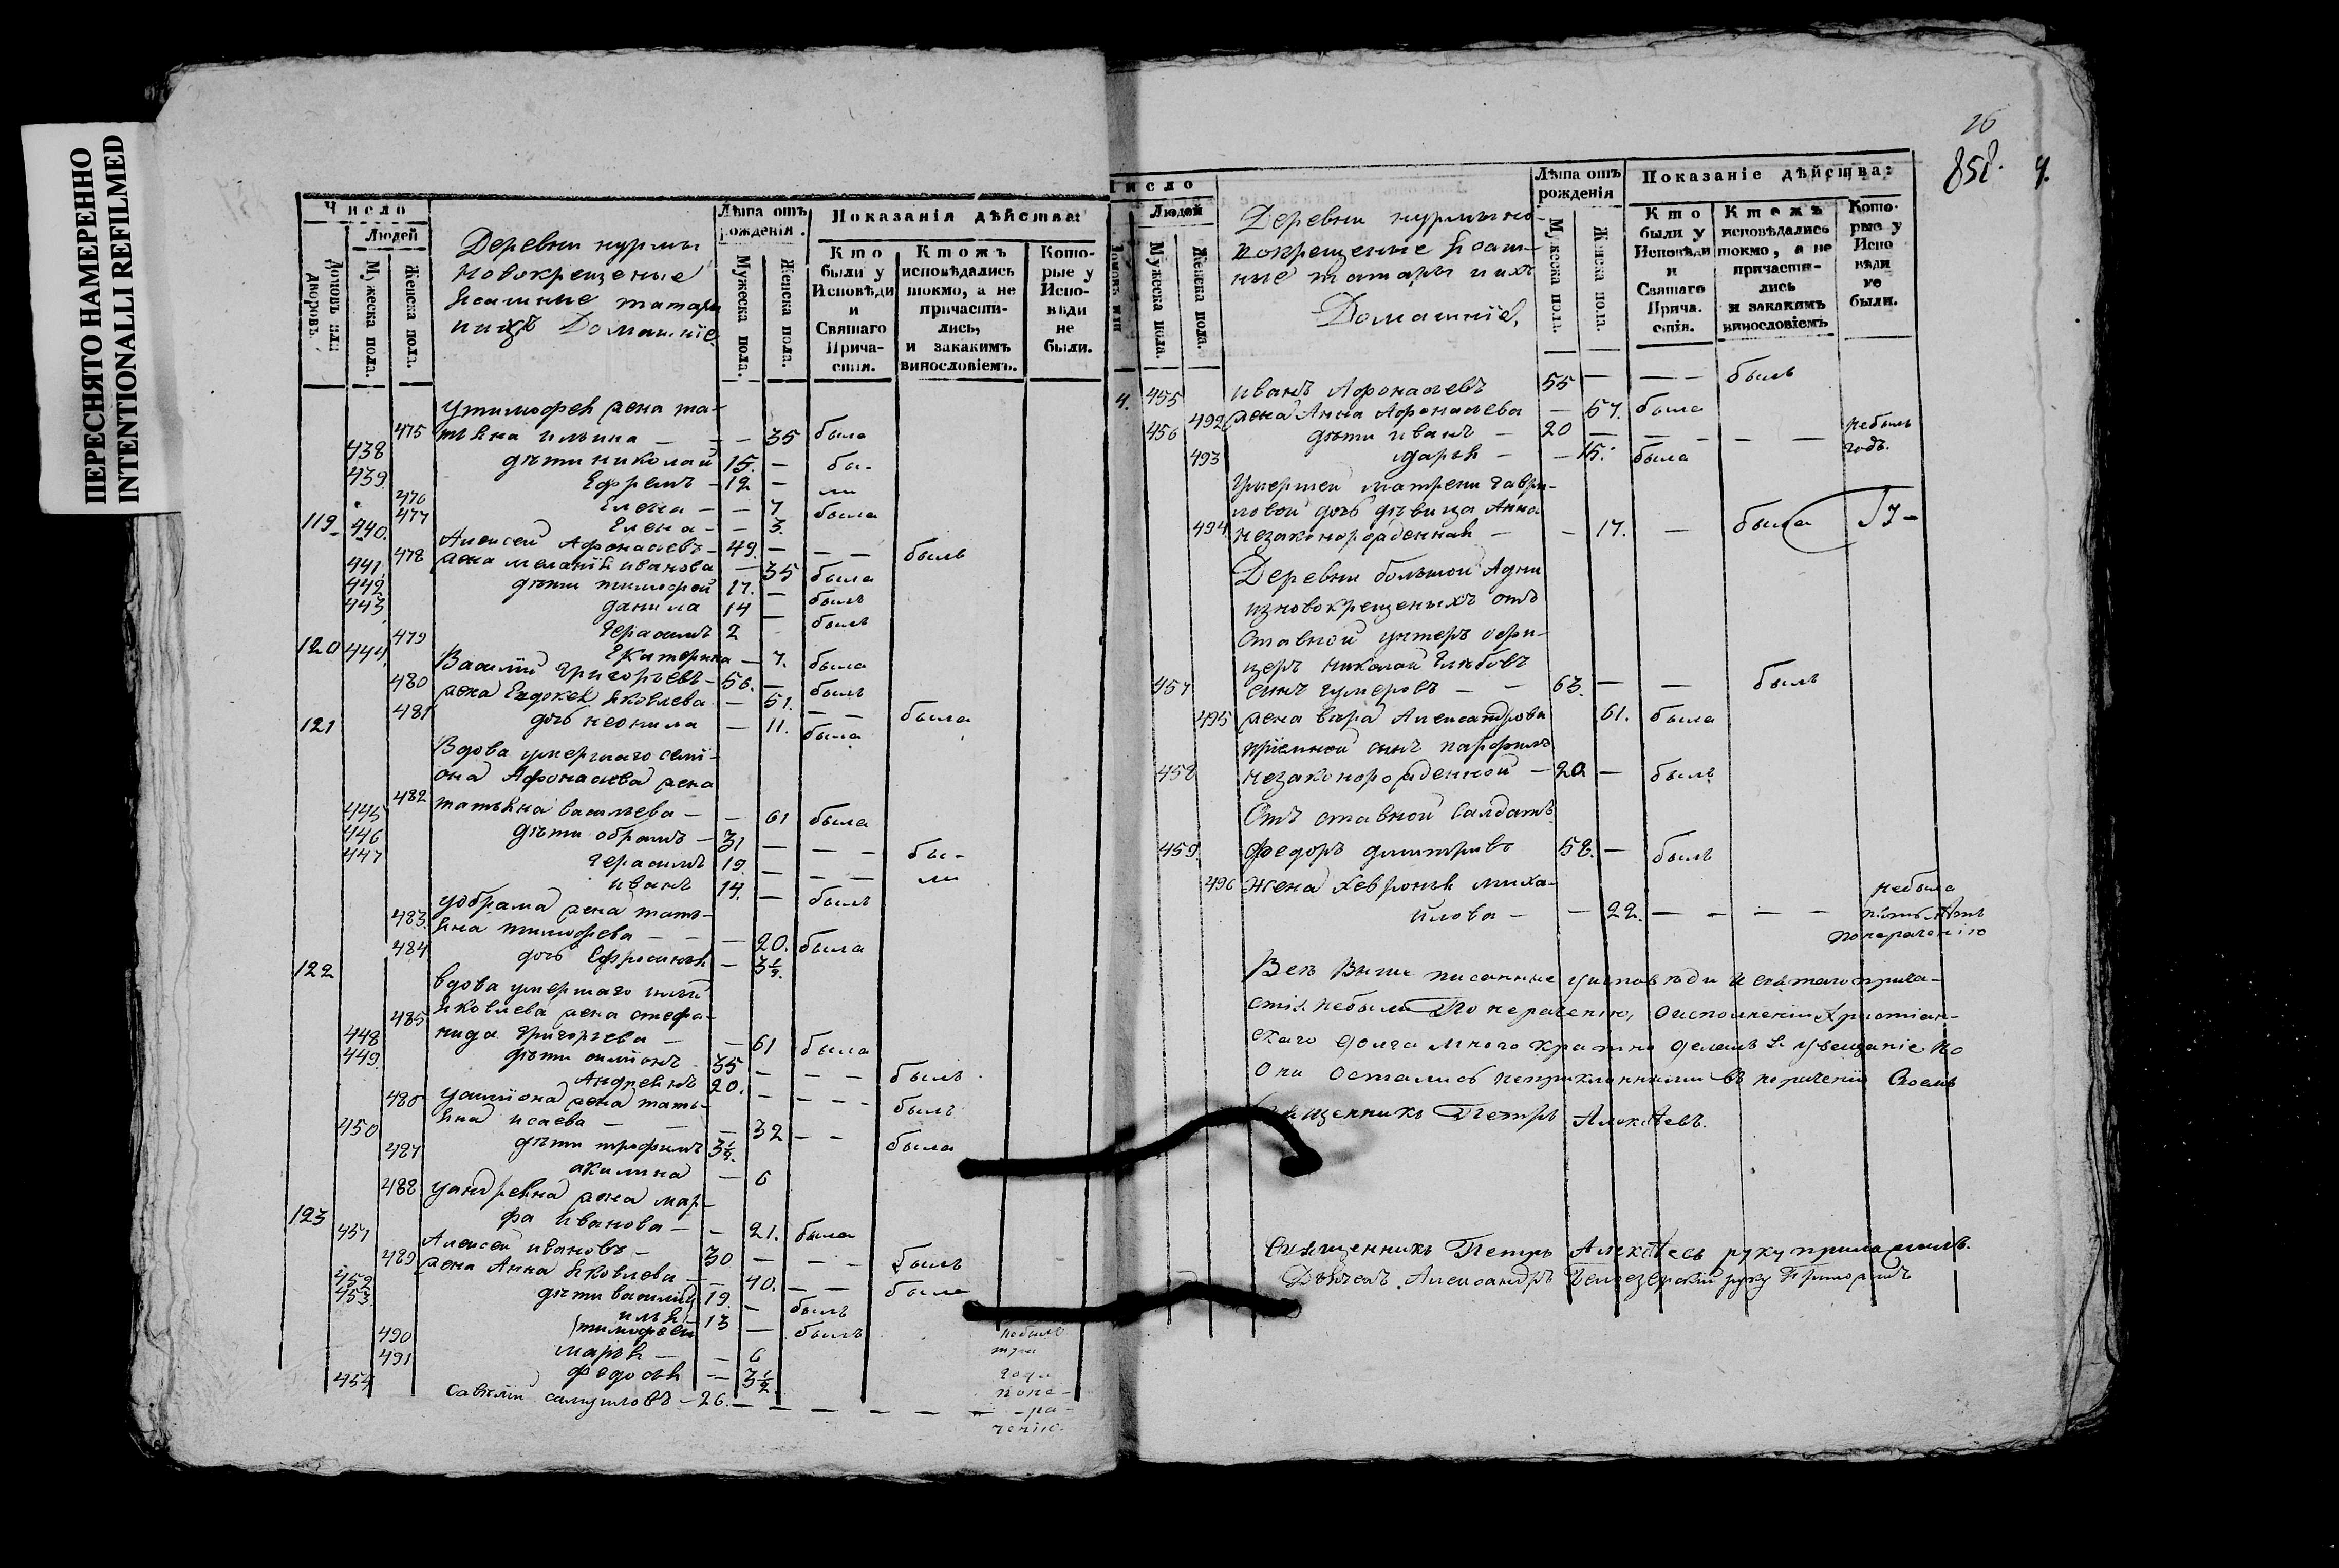 ПЕРЕСНЯТО НАМЕРЕННО
INTENTIONALLI REFILMED
Число
Людей
Домовъ или дворовъ.
Мужеска пола.
Женска пола.
Деревни нурмы
новокрещеные
ясашные татары
и ихъ Домашніе
Лѣта отъ рожденія.
Мужеска пола.
Женска пола.
Показанія дѣйства:
Кто были у Исповѣди и Святаго Причастія.
Ктожъ исповѣдались токмо, а не причастились, и закакимъ винословіемъ.
Которые у Исповѣди не были.
У тимофея жена та-
475 тьяна ильина — — 35 была
438 дѣти николай 15. — бы-
439 Ефремъ — 12 — ли
476 Елена — — 7 была
477 Елена — — 3.
119 440. Алексей Афонасьевъ — 49. — — — былъ
478 жена меланія иванова — 35 была
441. дѣти тимофей 17. — былъ
442 данила 14 — былъ
443 Герасимъ 2
479 Екатерина — 7. была
120 444. Василій Григорьевъ — 56. — былъ
480 жена Евдокея яковлева — 51. — — была
481 дочь неонила — 11. была
121
Вдова умершаго семі-
она Афонасьева жена
482 татьяна васильева — — 61 была
445 дѣти обрамъ — 31 — — — бы-
446 Герасимъ 19. — — — ли
447 иванъ 14. — былъ
У обрама жена тать-
483. яна тимофева — — — 20. была
484 дочь Ефросинья — 3½.
122
вдова умершаго
485 яковлева жена стефа-
нида Григорьева — — 61 была
448 дѣти симіонъ 35 — — — былъ
449. Андреянъ 20. — — — былъ
У симіона жена тать-
486 яна исаева — — — 32 — — была
450 дѣти трофимъ 3½.
487 акилина — 6
488 У андреяна жена мар-
фа Иванова — — 21. была
123 451 Алексей ивановъ — 30 — — — былъ
489 жена Анна яковлева — — 40. — — была
452 дѣти василій 19. — былъ
453. илья — 13 — былъ
тимофеи
490 марья — — 6
491 федосья — 3½.
454 савелій самуиловъ — 26. — — — — — — —
небылъ
три
года
поне-
ра-
ченію.
26
858.
Число
Людей
Домовъ или
Мужеска пола.
Женска пола.
Деревни нурмы но-
вокрещеные ясаш-
ные татары и ихъ
Домашніе,
Лѣта отъ рожденія
Мужеска пола.
Женска пола.
Показаніе дѣйства:
Кто были у Исповѣди и Святаго Причастія.
Ктожъ исповѣдались токмо, а не причастились и закакимъ винословіемъ
Которые у Исповѣди не были.
4. 455 иванъ Афонасьевъ 55 — — — былъ
492 жена Анна Афонасьева — 67. была
456 дѣти иванъ — 20 — — — — — небылъ
годъ.
493 дарья — — 15. была
Умершей матрены гаври-
ловой дочь дѣвица Анна
494 незаконорожденная — — 17. — была
Деревни большой Адни
изновокрещеныхъ отъ
ставной унтеръ офи-
церъ николай Глѣбовъ
457 сынъ гумеровъ — — 63. — — былъ
495 жена вѣра Александрова 61. была
пріемной сынъ парфилъ
458 незаконорожденной — 20. — былъ
Отъ ставной салдатъ
459. федоръ дмитривъ 58. — былъ
496 Жена хевронья миха-
йлова — — 22. — — — — небыла
пять лѣтъ
понераченію
Всѣ Выше писанные у исповѣди и святаго прича-
стія небыли По нераченію, о исполненіи Христіан-
скаго долга много кратно делалъ я увещаніе Но
они остались непреклонными въ нераченіи своемъ
Священникъ Петръ
Священникъ Петръ руку приложилъ.
Дьячекъ Александръ Белезерскій руку Приложилъ